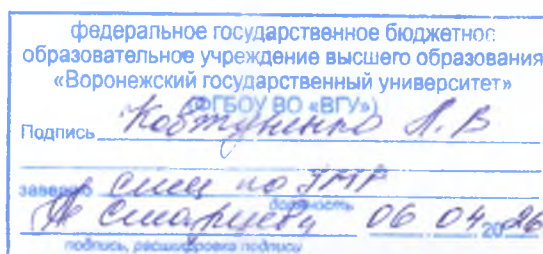 федеральное государственное бюджетное
образовательное учреждение высшего образования
«Воронежский государственный университет»
(ФГБОУ ВО «ВГУ»)
Подпись Ковтуненко А.В
заверяю спец по УМР
должность
Старцева 06 04 2026
подпись, расшифровка подписи